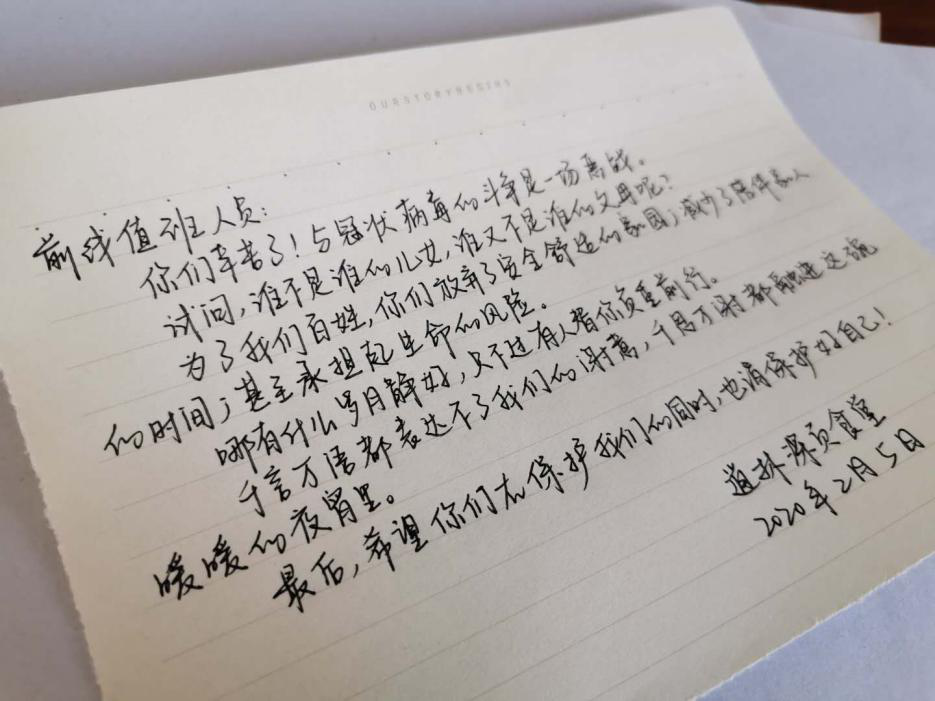 OURSTORYBEGINS
前线值班人员：
你们辛苦了！与冠状病毒的斗争是一场恶战。
试问，谁不是谁的儿女，谁又不是谁的父母呢？
为了我们百姓，你们放弃了安全舒适的家园；减少了陪伴家人
的时间；甚至承担起生命的风险。
哪有什么岁月静好，只不过有人替你负重前行。
千言万语都表达不了我们的谢意，千恩万谢都融进这碗
暖暖的夜宵里。
最后，希望你们在保护我们的同时，也请保护好自己！
食堂
2020年2月5日